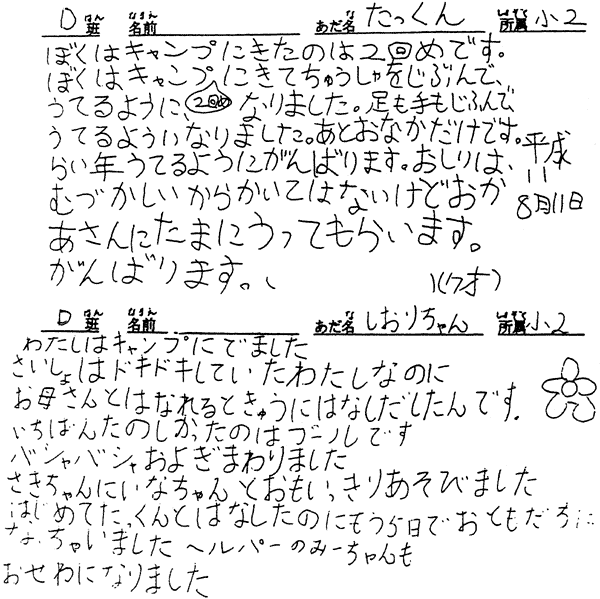 D 班 はん 名前 なまえ あだ名 な たっくん 所属 しょぞく 小2
ぼくはキャンプにきたのは2回めです。
ぼくはキャンプにきてちゅうしゃをじぶんで、
うてるように、2回め なりました。足も手もじぶんで
うてるよういなりました。あとおなかだけです。
らい年うてるようにがんばります。おしりは、
むづかしいからかいてはないけどおか
あさんにたまにうってもらいます。
がんばります。
平成
11
8月11日
(7才)
D 班 はん 名前 なまえ あだ名 な しおりちゃん 所属 しょぞく 小2
わたしはキャンプにでました
さいしょはドキドキしていたわたしなのに
お母さんとはなれるときゅうにはなしだしたんです.
いちばんたのしかったのはプールです
バシャバシャおよぎまわりました
さきちゃんにいなちゃんとおもいっきりあそびました
はじめてたっくんとはなしたのにもう5日でおともだちに
なっちゃいました ヘルパーのみーちゃんも
おせわになりました